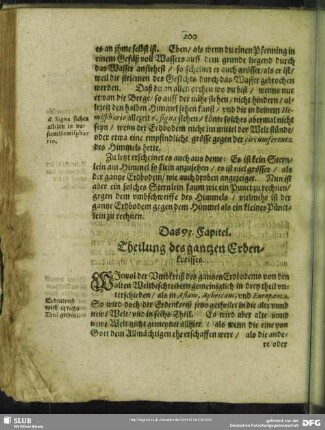 200
es an jhme selbst ist. Eben/ als wenn du einen Pfenning in
einem Gefäß voll Wassers auff dem grunde liegend durch
das Wasser ansihest/ so scheinet er auch grösser/ als er ist/
weil die striemen des Gesichts durch das Wasser gebrochen
werden. Daß du an allen orthen wo du bist/ wenns nur
etwan die Berge/ so auff der nähe stehen/ nicht hindern/ al-
lezeit den halben Himmel sehen kanst/ und die in deinem He-
misphærio allezeit 6. signa stehen/ könte solches abermal nicht
seyn/ wenn der Erdbodem nicht im mittel der Welt stünde/
oder etwa eine empfindliche grösse gegen der circumferentz
des Himmels hette.
6 Signa stehen
allezeit in
hemisphæ-
rio.
Zu letzt erscheinet es auch aus deme: Es ist kein Stern-
lein am Himmel so klein anzusehen/ es ist viel grösser/ als
der gantze Erdbodem/ wie auch droben angezeiget. Nun ist
aber ein solches Sternlein kaum wie ein Punct zu rechnen/
gegen dem umbschweiffe des Himmels/ vielmehr ist der
gantze Erdbodem gegen dem Himmel als ein kleines Punct-
lein zu rechnen.
Das 93. Capitel.
Theilung des gantzen Erden-
kreisses.
Wiewol der Umbkreiß des gantzen Erdbodems von den
alten Weltbeschreibern gemeiniglich in drey theil un-
terschieden/ als in Asiam, Aphricam, und Europam.
So wird doch der Erdenkreiß jetzo getheilet in die alte vund
newe Welt/ und in sechs theil. Es wird aber alte und
newe Welt nicht genennet allhier/ als wenn die eine von
Gott dem Allmächtigen ehe erschaffen were/ als die ande-
re/ oder
Erdkreiß
wird
Theil getheilet.
SLUB
Wir führen Wissen.
gefördert von der
Deutschen Forschungsgemeinschaft
DFG